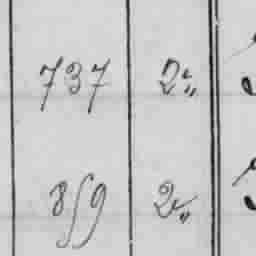 737 2 "
859 2 "